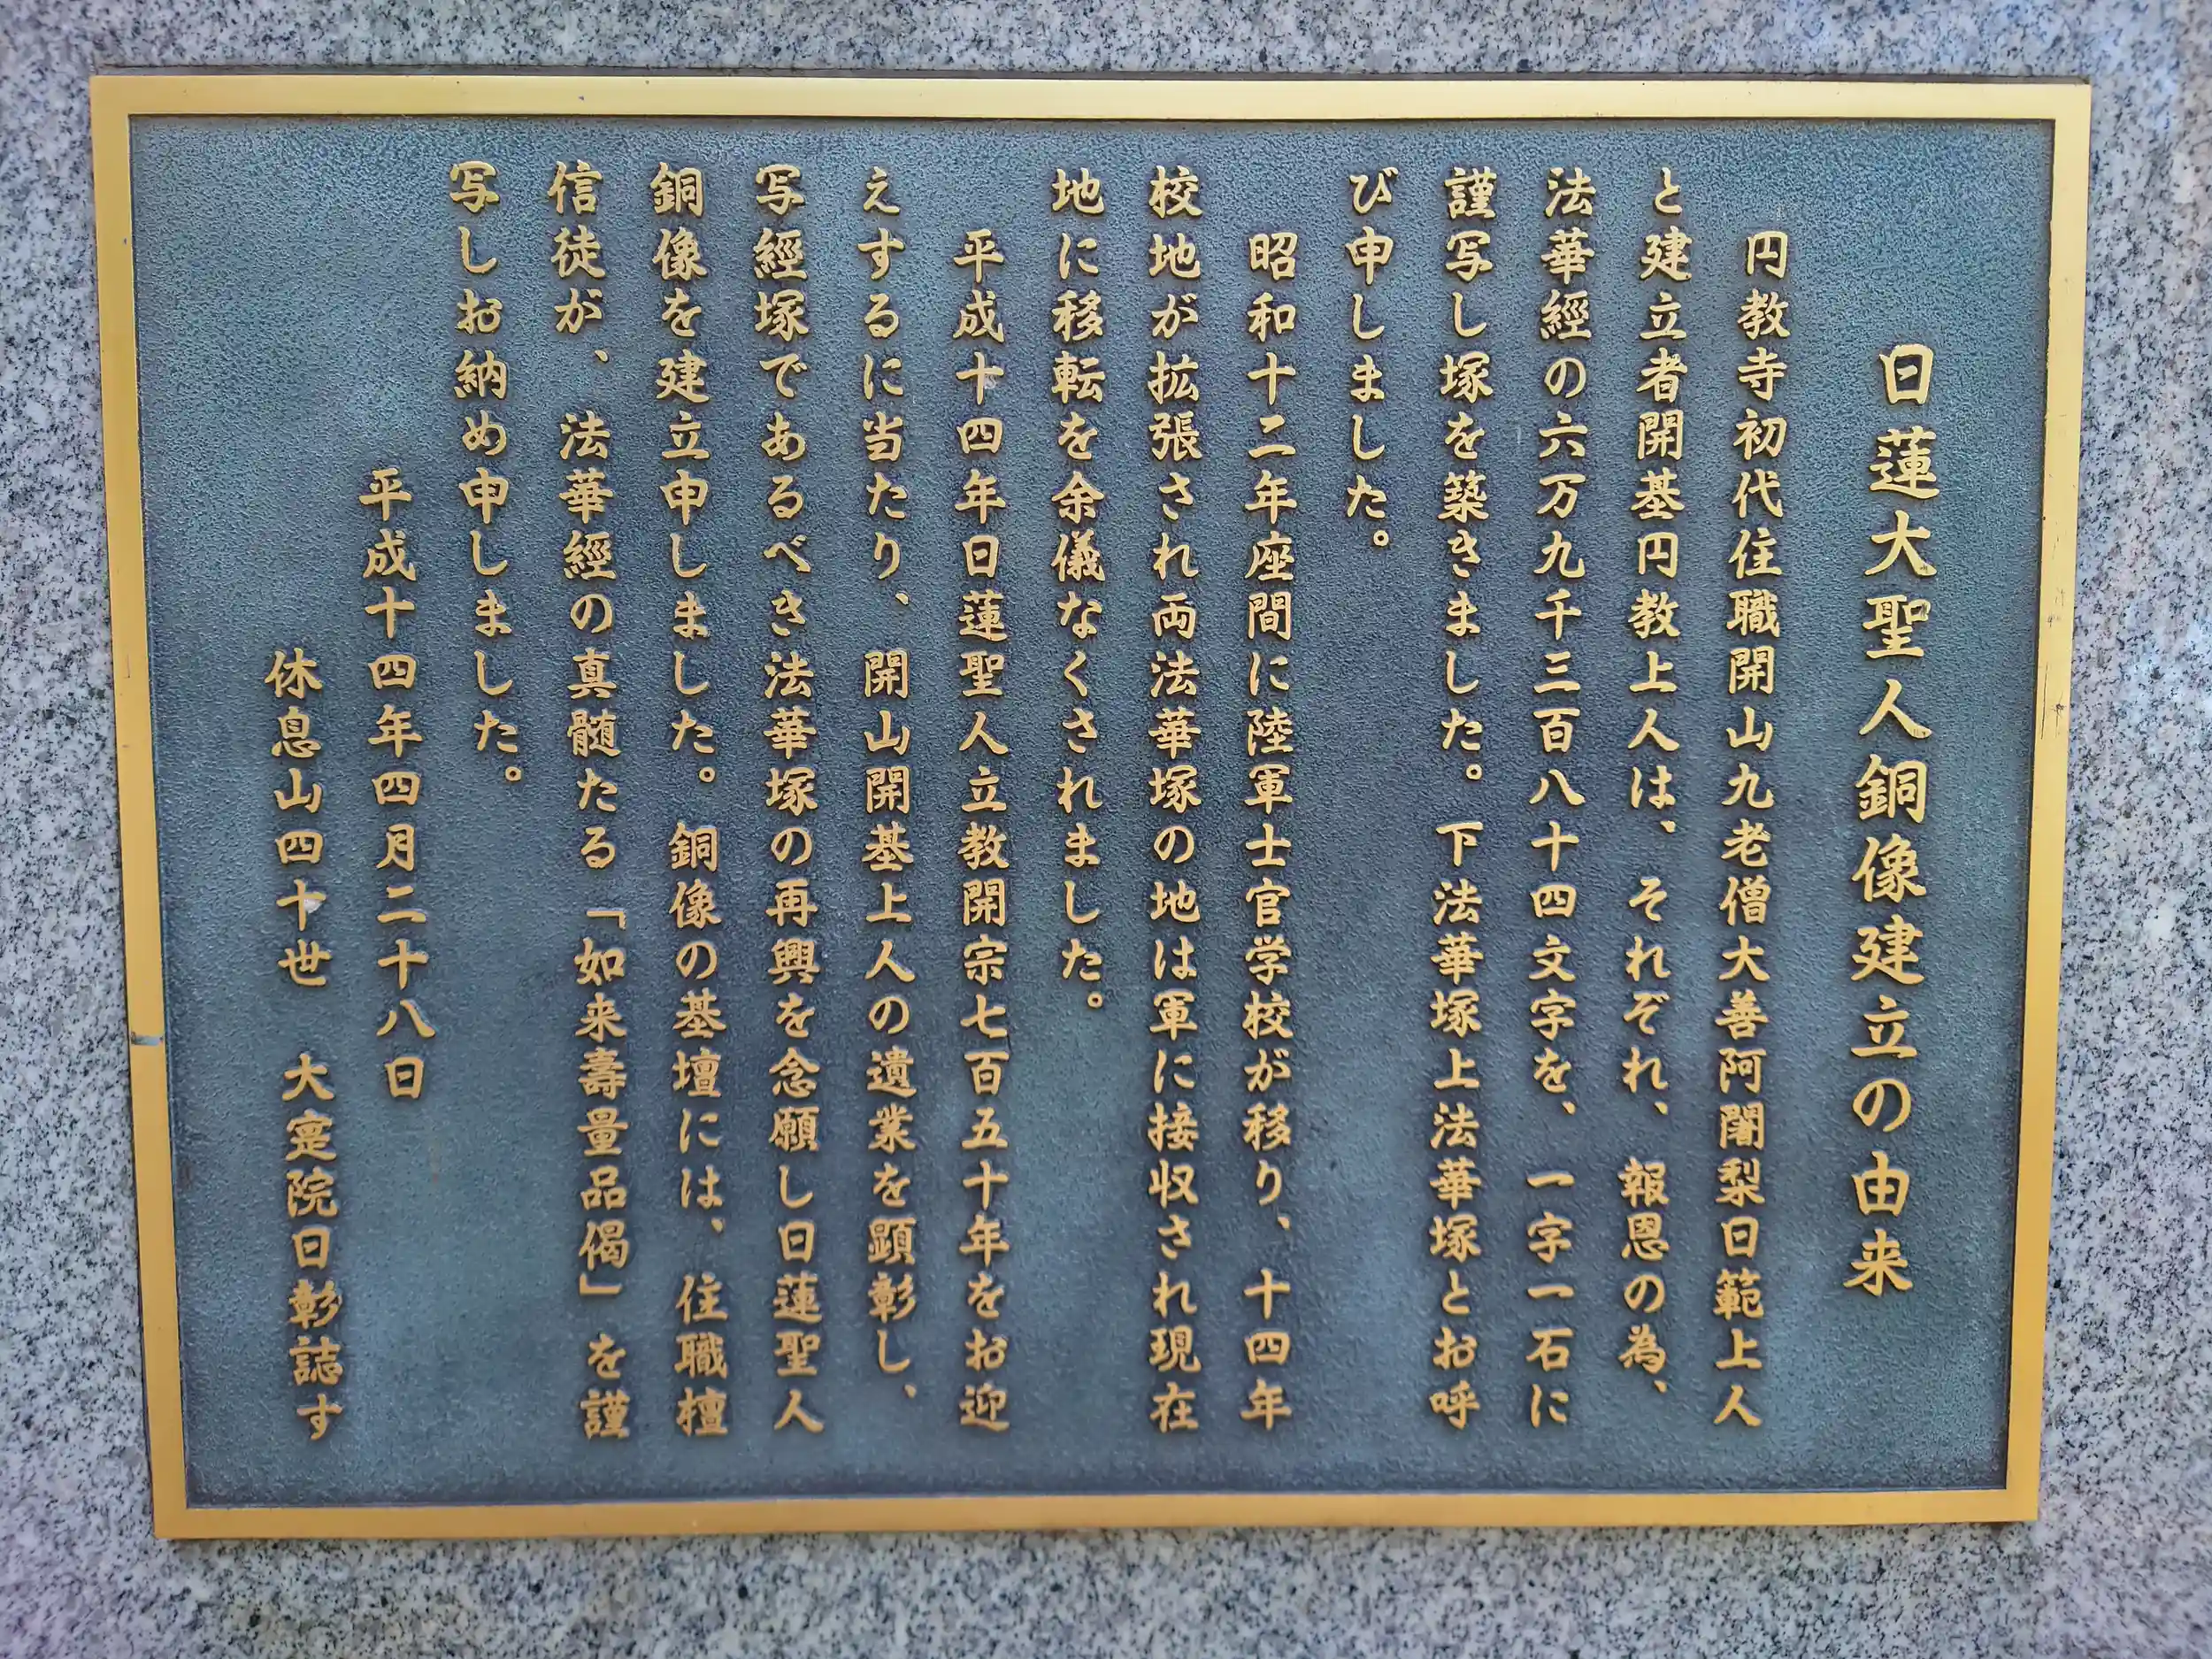 日蓮大聖人銅像建立の由来
円教寺初代住職開山九老僧大善阿闍梨日範上人
と建立者開基円教上人は、それぞれ、報恩の為、
法華經の六万九千三百八十四文字を、一字一石に
謹写し塚を築きました。下法華塚上法華塚とお呼
び申しました。
昭和十二年座間に陸軍士官学校が移り、十四年
校地が拡張され両法華塚の地は軍に接収され現在
地に移転を余儀なくされました。
平成十四年日蓮聖人立教開宗七百五十年をお迎
えするに当たり、開山開基上人の遺業を顕彰し、
写經塚であるべき法華塚の再興を念願し日蓮聖人
銅像を建立申しました。銅像の基壇には、住職檀
信徒が、法華經の真髄たる「如来壽量品偈」を謹
写しお納め申しました。
平成十四年四月二十八日
休息山四十世　大寔院日彰誌す